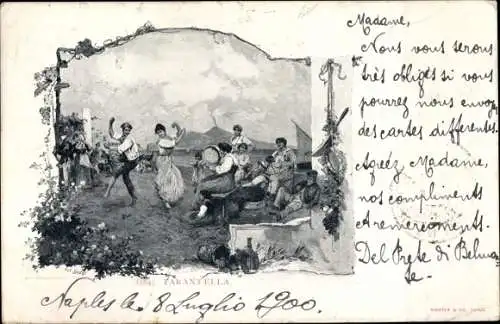 Madame,
Nous vous serons
très obligés si vous
pourrez nous envoy
des cartes différentes.
Agréez Madame,
nos compliments
& remerciments.
Del Prete di Belmon
te.
TARANTELLA
Naples le 8 Luglio 1900.